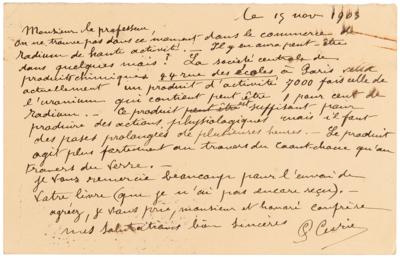 le 15 nov 1903
Monsieur le professeur,
On ne trouve pas dans ce moment dans le commerce de
radium de haute activité. — Il y en aura peut-être
dans quelques mois. La société centrale de
produits chimiques 44 rue des écoles à Paris
actuellement un produit d'activité 7000 fois celle de
l'uranium qui contient peut être 1 pour cent de
radium. — Ce produit peut être suffisant pour
produire des actions physiologiques mais il faut
des poses prolongées de plusieurs heures. — Le produit
agit plus fortement au travers du caoutchouc qu'au
travers du verre. —
Je vous remercie beaucoup pour l'envoi de
votre livre (que je n'ai pas encore reçu). —
agréez, je vous prie, monsieur et honoré confrère
mes salutations bien sincères
P. Curie